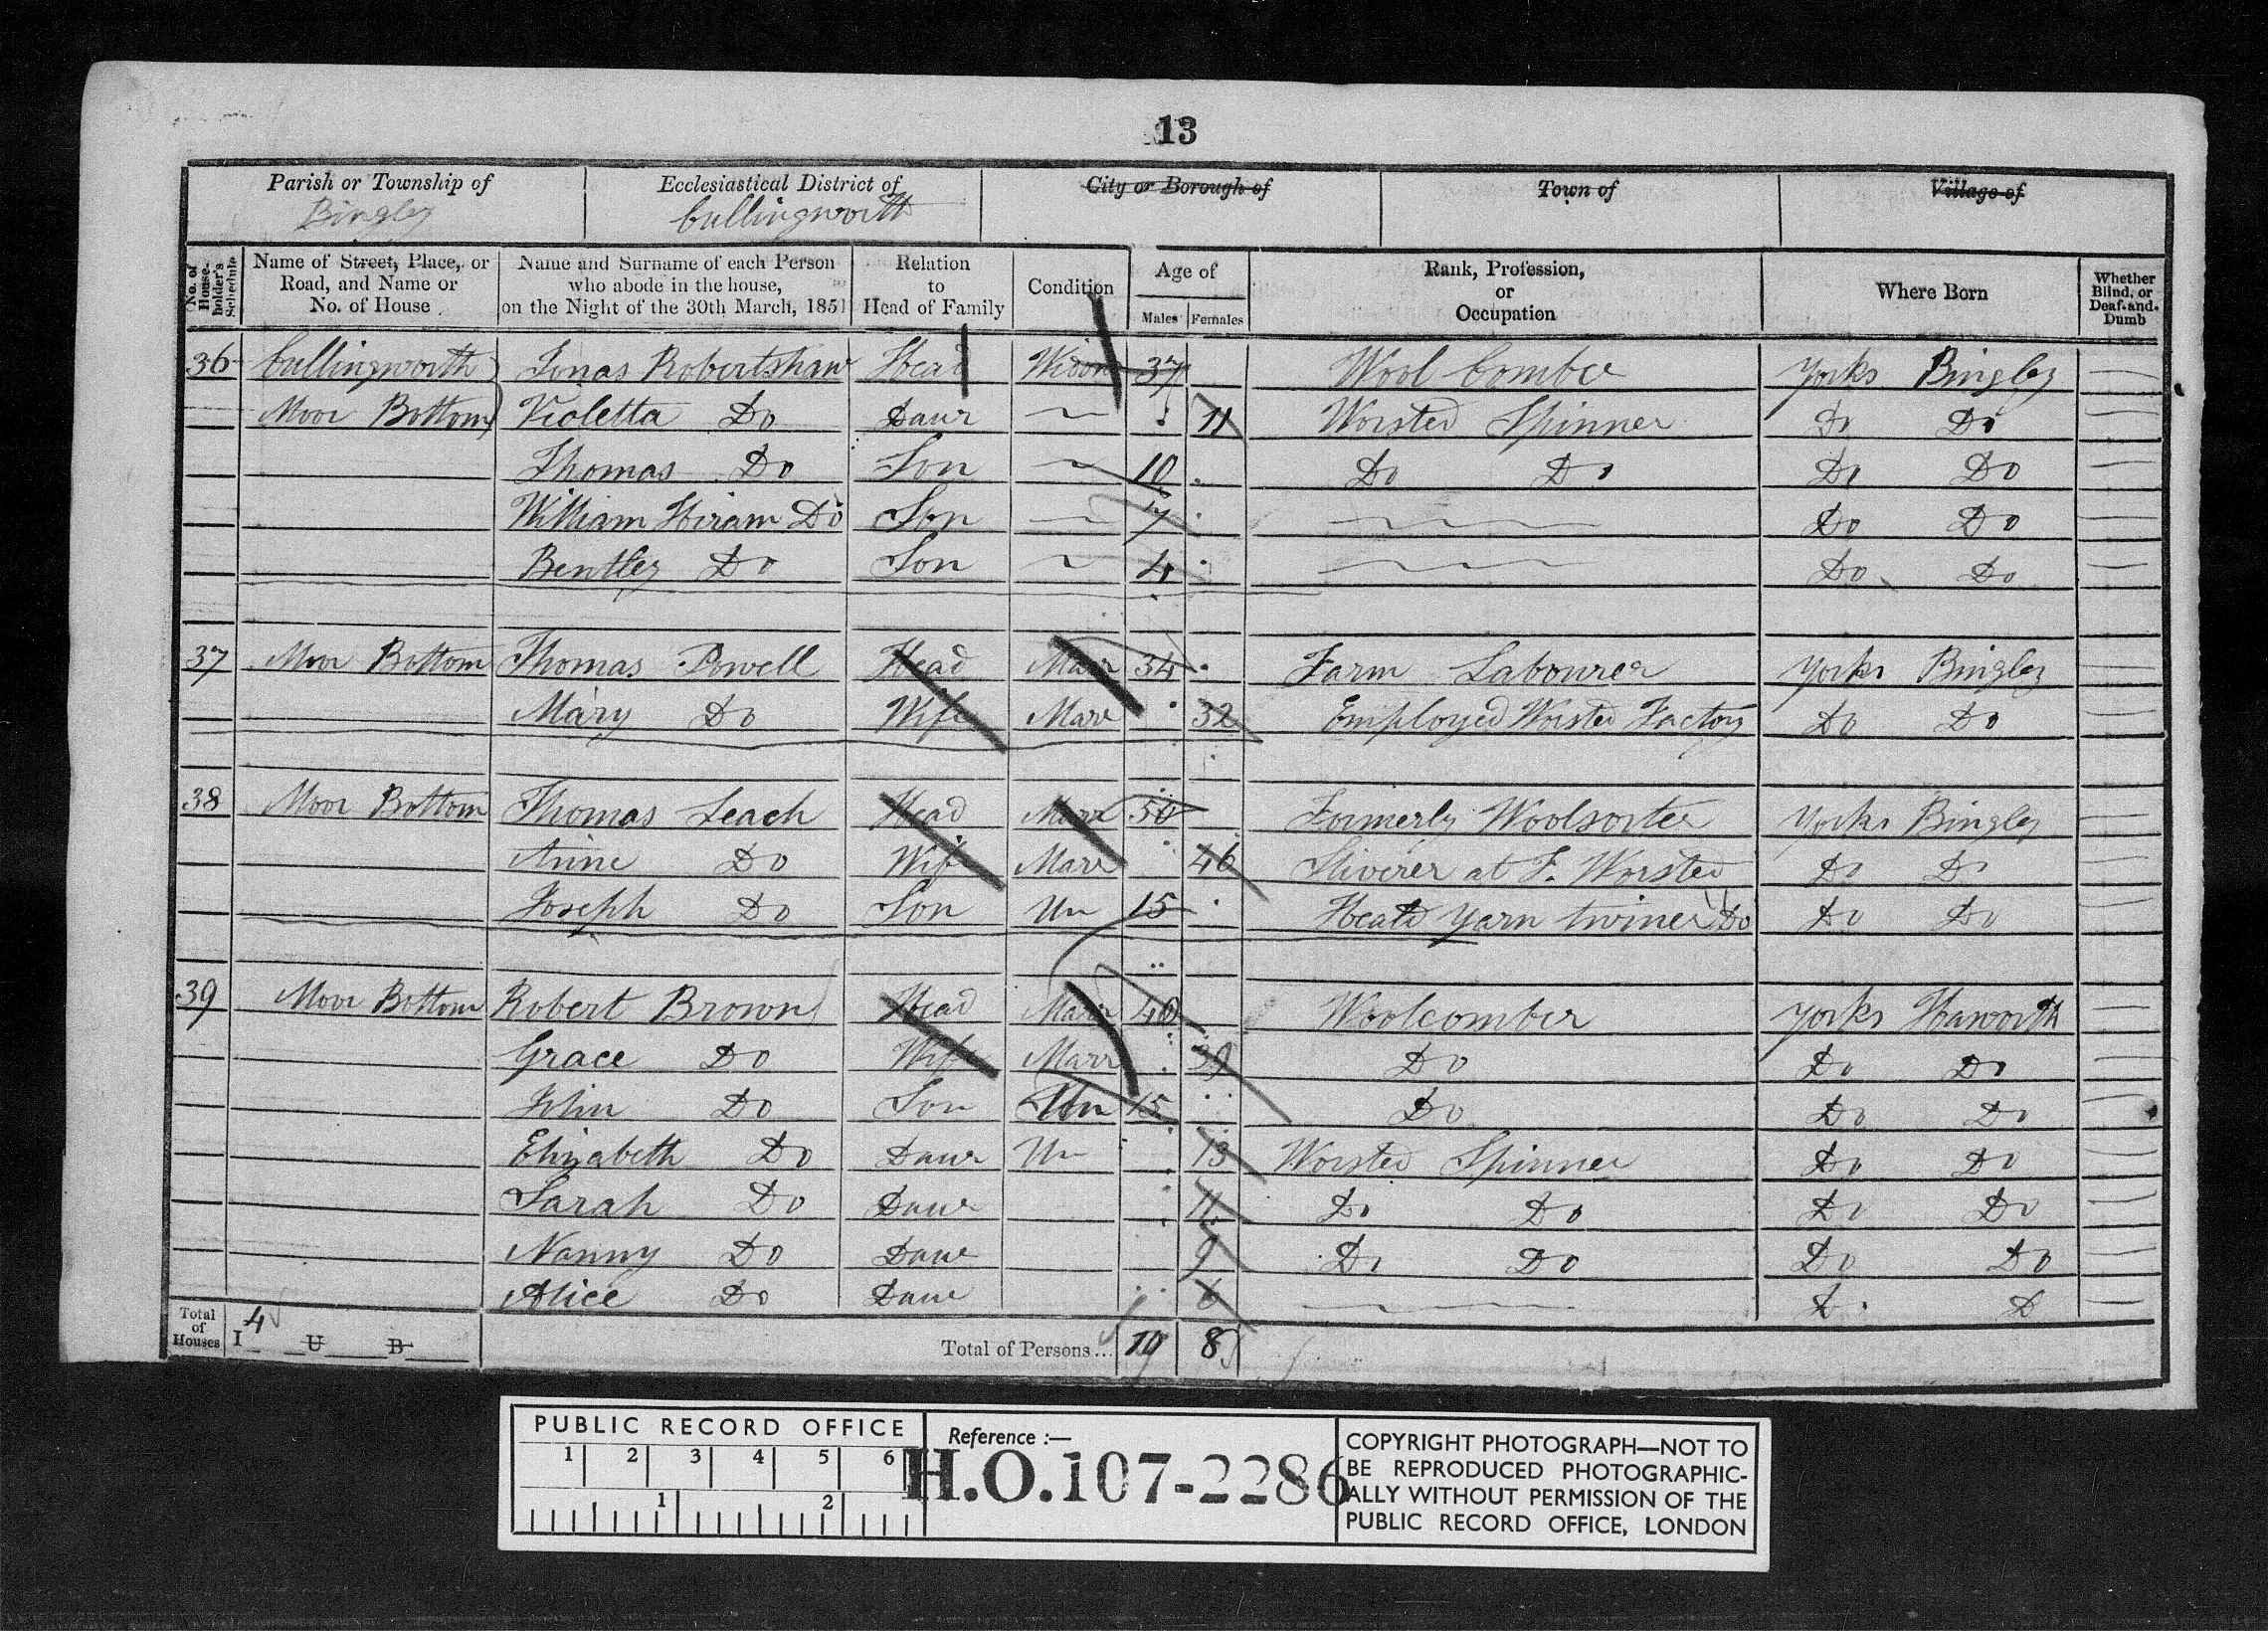 13
Parish or Township of Ecclesiastical District of City or Borough of Town of Village of
Bingley Cullingworth
No. of House-holder's Schedule Name of Street, Place, or Road, and Name or No. of House Name and Surname of each Person who abode in the house, on the Night of the 30th March, 1851 Relation to Head of Family Condition Age of Males Females Rank, Profession, or Occupation Where Born Whether Blind, or Deaf-and-Dumb
36 Cullingworth Jonas Robertshaw Head 37 Wool Comber Yorks Bingley
Moor Bottom Violetta Do Daur 11 Worsted Spinner Do Do
Thomas Do Son 10 Do Do Do Do
William Hiram Do Son 7 Do Do
Bentley Do Son 4 Do Do
37 Moor Bottom Thomas Powell Head Marr 34 Farm Labourer Yorks Bingley
Mary Do Wife Marr 32 Employed Worsted Factory Do Do
38 Moor Bottom Thomas Leach Head Marr Formerly Woolsorter Yorks Bingley
Anne Do Wife Marr 46 at F. Worsted Do Do
Joseph Do Son Un 15 Heald Yarn twiner Do Do Do
39 Moor Bottom Robert Brown Head Marr 40 Woolcomber Yorks Haworth
Grace Do Wife Marr 39 Do Do Do
John Do Son Un 15 Do Do Do
Elizabeth Do Daur Un 13 Worsted Spinner Do Do
Sarah Do Daur 11 Do Do Do Do
Nanny Do Daur 9 Do Do Do Do
Alice Do Daur 6 D D
Total of Houses I 4 U B Total of Persons... 8
PUBLIC RECORD OFFICE
1 2 3 4 5 6
1 2
Reference :—
H.O. 107-2286
COPYRIGHT PHOTOGRAPH—NOT TO
BE REPRODUCED PHOTOGRAPHIC-
ALLY WITHOUT PERMISSION OF THE
PUBLIC RECORD OFFICE, LONDON